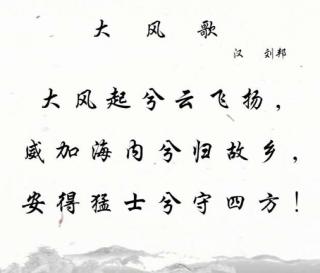 大风歌
汉 刘邦
大风起兮云飞扬，
威加海内兮归故乡，
安得猛士兮守四方！